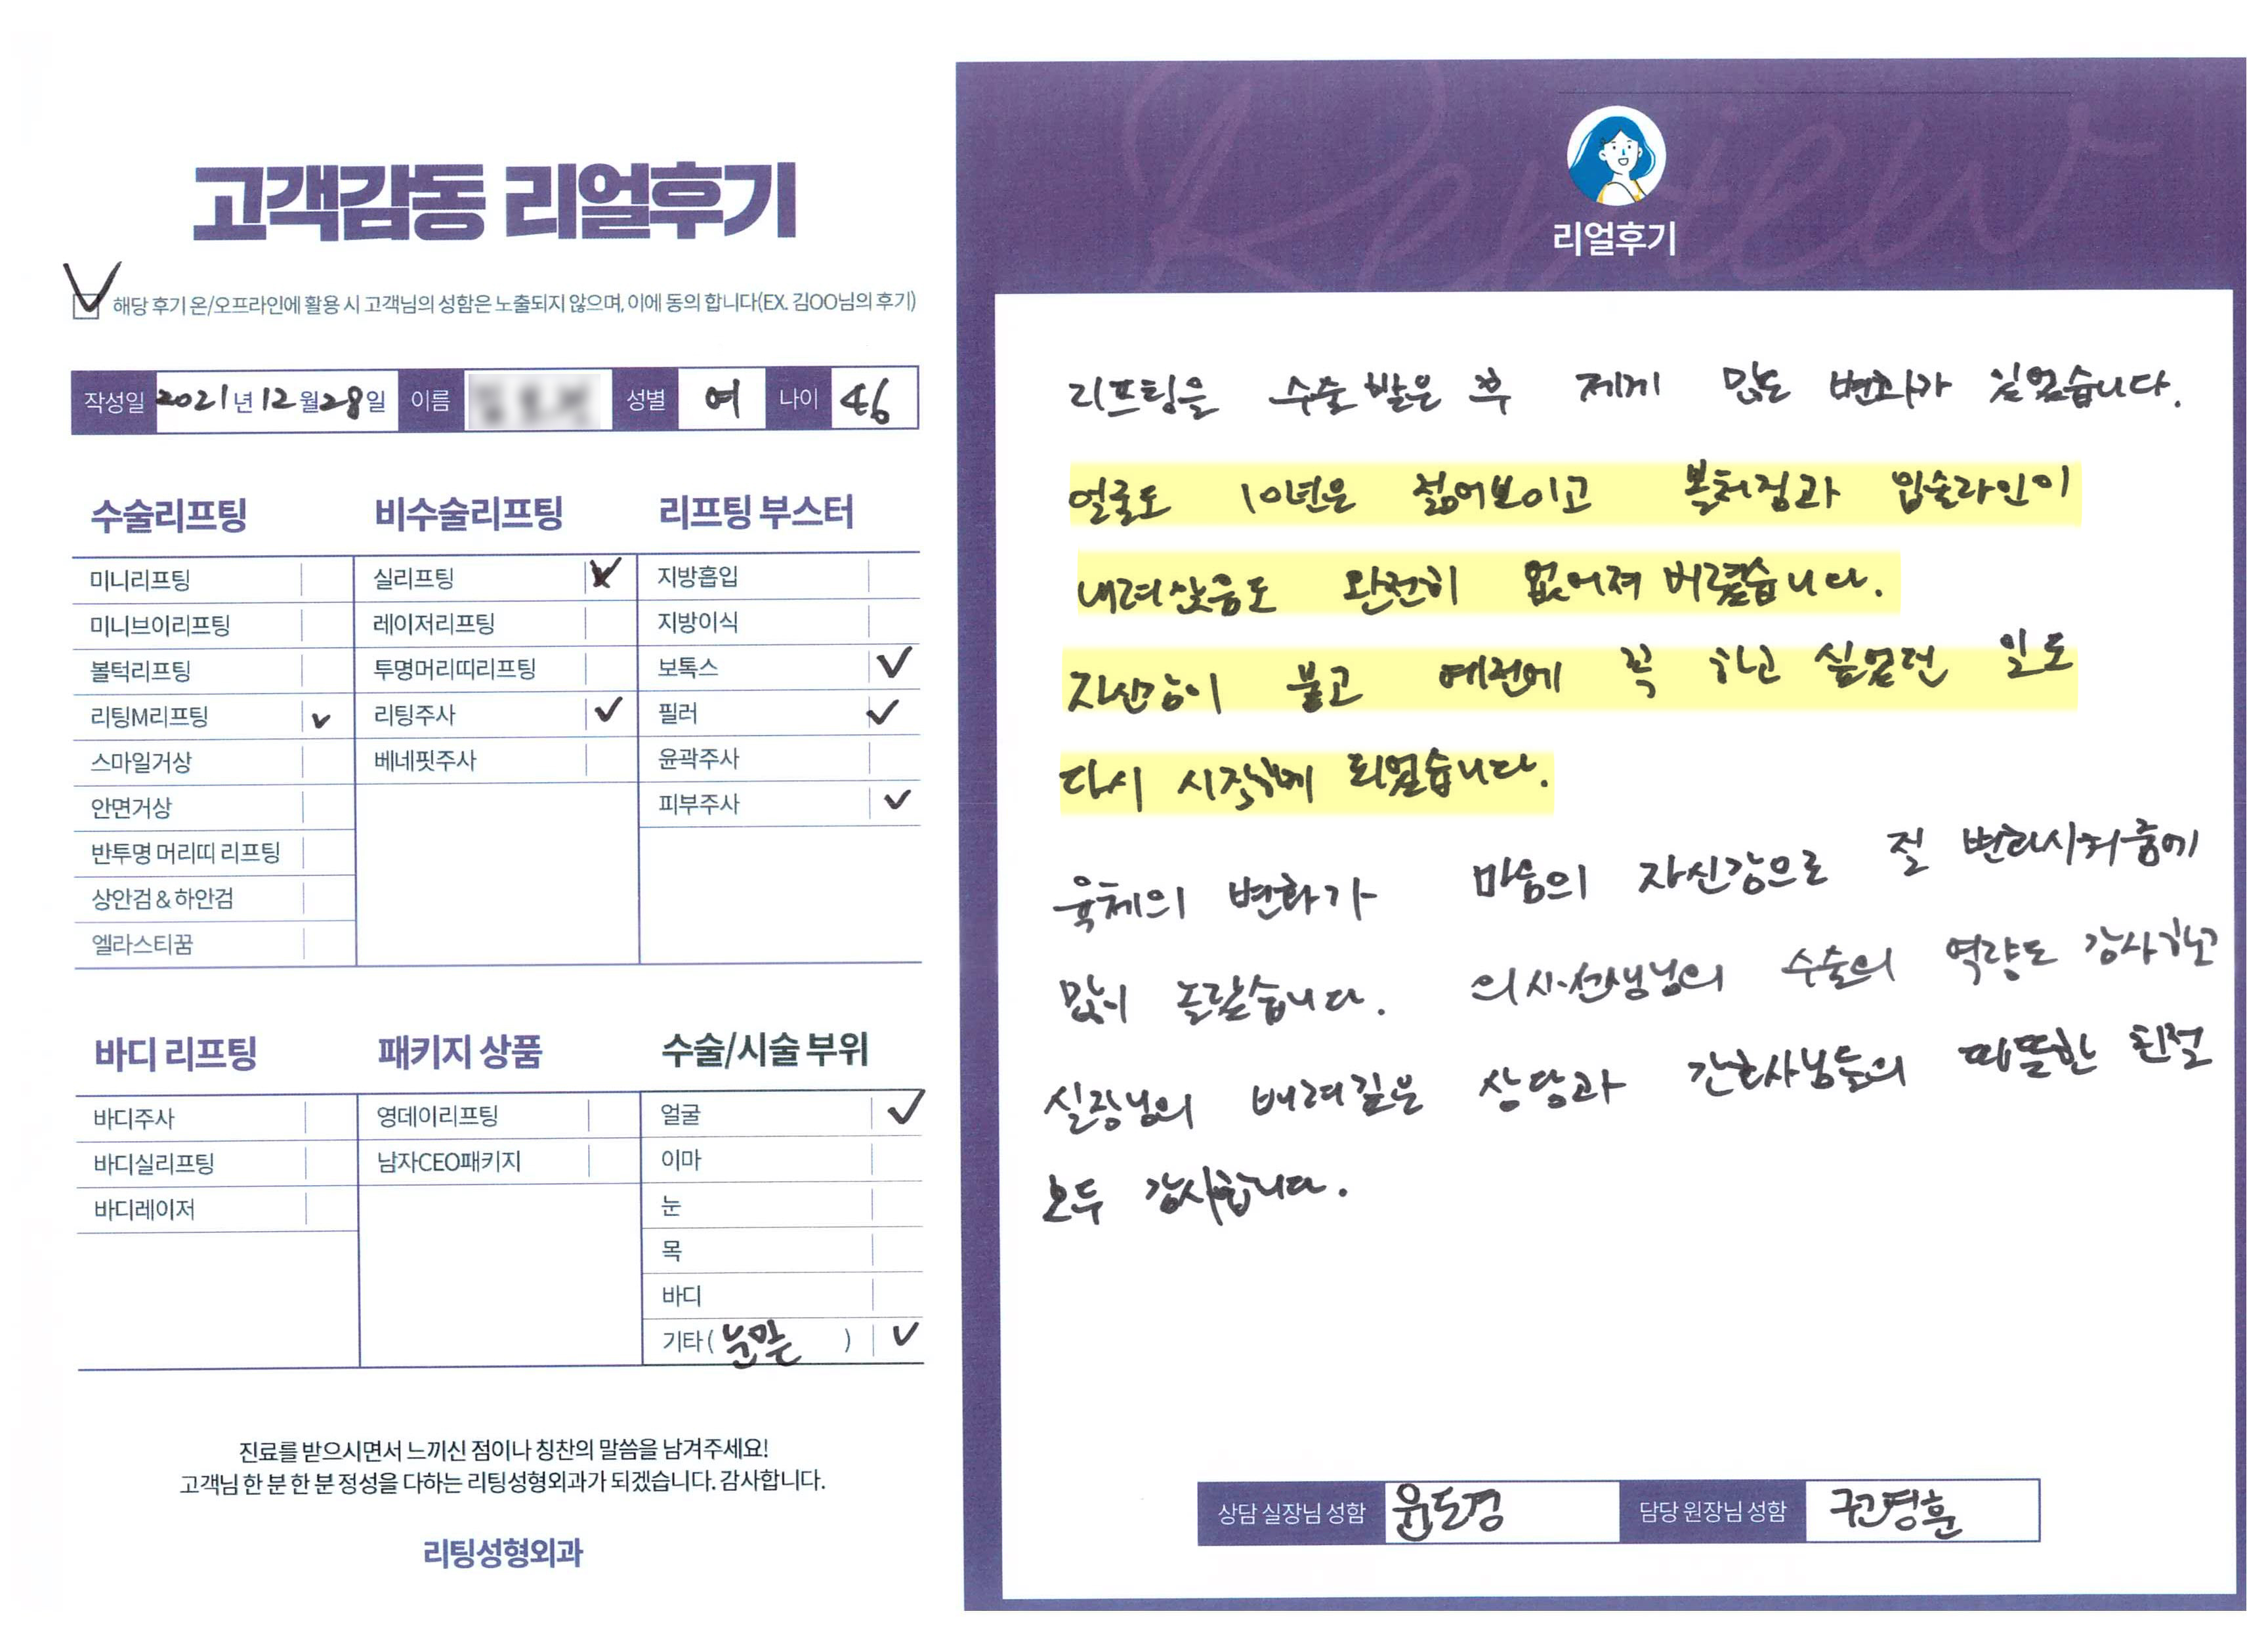 고객감동 리얼후기
해당 후기 온/오프라인에 활용 시 고객님의 성함은 노출되지 않으며, 이에 동의 합니다(EX. 김OO님의 후기)
작성일 2021년 12월 28일 이름 성별 여 나이 46
수술리프팅
미니리프팅
미니브이리프팅
볼턱리프팅
리팅M리프팅
스마일거상
안면거상
반투명 머리띠 리프팅
상안검 & 하안검
엘라스티꿈
비수술리프팅
실리프팅
레이저리프팅
투명머리띠리프팅
리팅주사
베네핏주사
리프팅 부스터
지방흡입
지방이식
보톡스
필러
윤곽주사
피부주사
바디 리프팅
바디주사
바디실리프팅
바디레이저
패키지 상품
영데이리프팅
남자CEO패키지
수술/시술 부위
얼굴
이마
눈
목
바디
기타 (눈밑)
진료를 받으시면서 느끼신 점이나 칭찬의 말씀을 남겨주세요!
고객님 한 분 한 분 정성을 다하는 리팅성형외과가 되겠습니다. 감사합니다.
리팅성형외과
Review
리얼후기
리프팅을 수술 받은 후 제게 많은 변화가 있었습니다.
얼굴도 10년은 젊어보이고 볼처짐과 입술라인이
내려앉음도 완전히 없어져 버렸습니다.
자신감이 붙고 예전에 꼭 하고 싶었던 일도
다시 시작하게 되었습니다.
육체의 변화가 마음의 자신감으로 절 변화시켜줌에
많이 놀랐습니다. 의사선생님의 수술의 역량도 감사하고
실장님의 배려깊은 상담과 간호사님들의 따뜻한 친절
모두 감사합니다.
상담 실장님 성함 윤도경 담당 원장님 성함